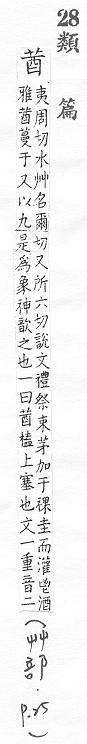 28類篇
莤
夷周切水艸名爾
雅莤蔓于又以九
切又所六切說文禮祭束茅加于祼圭而灌鬯酒
是爲莤象神歆之也一曰莤榼上塞也文一重音二
(艸部·p.25)